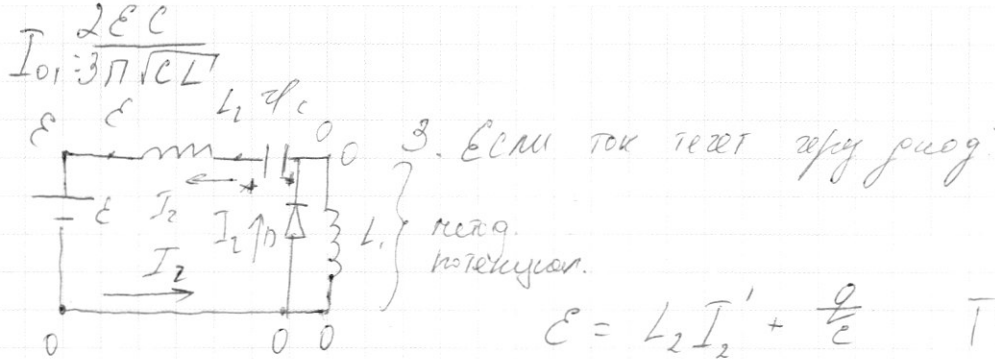 I₀₁ = 2ℰC / 3π√CL
ℰ ℰ L₂ C 0 0
3. Если ток течет через диод
ℰ I₂ I₂ ↑ D L₁
метод.
потенциал.
I₂
0 0 0
ℰ = L₂I₂' + q/c T